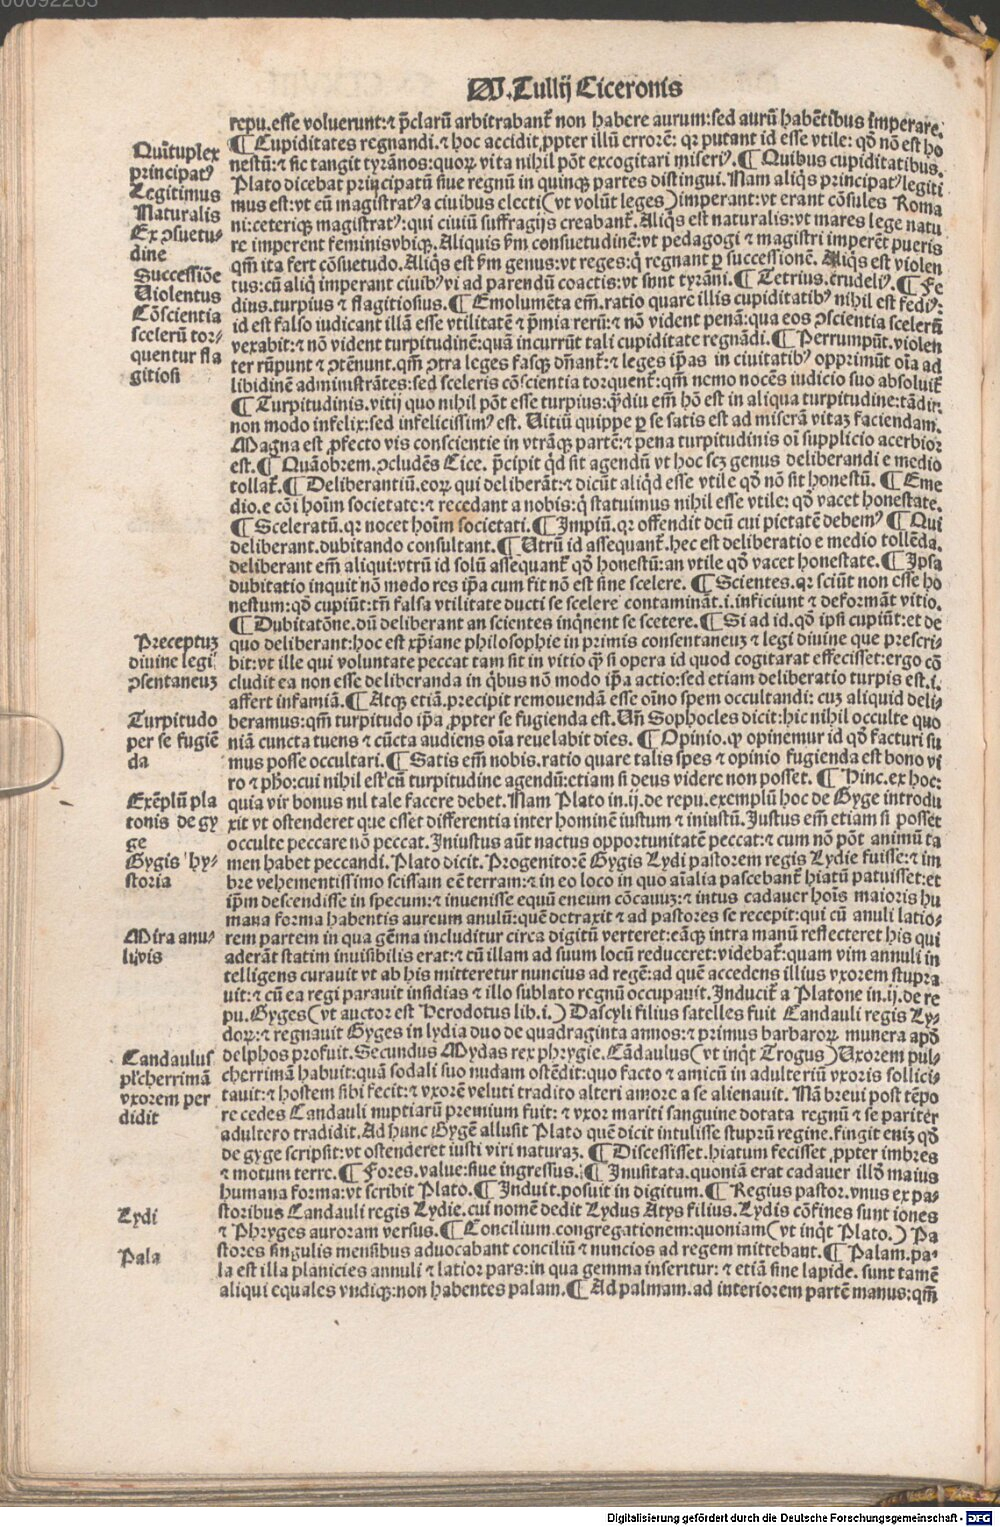 00092263
M.Tullij Ciceronis
repu.esse voluerunt:⁊ p̄clarū arbitrabant̄ non habere aurum:sed aurū habētibus imperare.
¶ Cupiditates regnandi.⁊ hoc accidit ꝓpter illū errorē: qꝛ putant id esse vtile: qd̄ nō est ho
nestū:⁊ sic tangit tyrānos:quoꝝ vita nihil pōt excogitari miseri⁹.¶ Quibus cupiditatibus.
Plato dicebat principatū siue regnū in quinqꝫ partes distingui. Nam aliq̇s principat⁹ legiti
mus est:vt cū magistrat⁹ a ciuibus electi(vt volūt leges)imperant:vt erant cōsules Roma
ni:ceteriqꝫ magistrat⁹:qui ciuiū suffragijs creabant̄. Aliq̇s est naturalis:vt mares lege natu
re imperent feminis vbiqꝫ. Aliquis ẜm consuetudinē:vt pedagogi ⁊ magistri imperēt pueris
qm̄ ita fert cōsuetudo. Aliq̇s est ẜm genus:vt reges:q̇ regnant ꝑ successionē. Aliq̇s est violen
tus:cū aliq̇ imperant ciuib⁹ vi ad parendū coactis:vt sunt tyrāni.¶ Tetrius.crudeli⁹.¶ Fe
dius.turpius ⁊ flagitiosius.¶ Emolumēta em̄.ratio quare illis cupiditatib⁹ nihil est fedi⁹:
id est falso iudicant illā esse vtilitatē ⁊ p̄mia rerū:⁊ nō vident penā:qua eos ꝯscientia scelerū
vexabit:⁊ nō vident turpitudinē:quā incurrūt tali cupiditate regnādi.¶ Perrumpūt.violen
ter rūpunt ⁊ ꝯtēnunt.qm̄ ꝯtra leges fasqꝫ dn̄ant̄:⁊ leges ip̄as in ciuitatib⁹ opprimūt oīa ad
libidinē administrātes:sed sceleris cōscientia torquent̄:qm̄ nemo nocēs iudicio suo absoluit̄
¶ Turpitudinis.vitij quo nihil pōt esse turpius:q̄diu em̄ hō est in aliqua turpitudine:tādiu
non modo infelix:sed infelicissim⁹ est. Uitiū quippe ꝑ se satis est ad miserā vitaꝫ faciendam.
Magna est ꝓfecto vis conscientie in vtrāqꝫ partē:⁊ pena turpitudinis oī supplicio acerbior
est.¶ Quāobrem.ꝯcludēs Cice. p̄cipit q̇d sit agendū vt hoc scꝫ genus deliberandi e medio
tollat̄.¶ Deliberantiū.eoꝝ qui deliberāt:⁊ dicūt aliq̇d esse vtile qd̄ nō sit honestū. ¶ Eme
dio.e cōi hoīm societate:⁊ recedant a nobis:q̇ statuimus nihil esse vtile: qd̄ vacet honestate.
¶ Sceleratū.qꝛ nocet hoīm societati.¶ Impiū.qꝛ offendit deū cui pietatē debem⁹ ¶ Qui
deliberant.dubitando consultant.¶ Utrū id assequant̄.hec est deliberatio e medio tollēda.
deliberant em̄ aliqui:vtrū id solū assequant̄ qd̄ honestū:an vtile qd̄ vacet honestate.¶ Ipsa
dubitatio inquit nō modo res ip̄a cum fit nō est sine scelere. ¶ Scientes.qꝛ sciūt non esse ho
nestum:qd̄ cupiūt:tn̄ falsa vtilitate ducti se scelere contamināt.i.inficiunt ⁊ deformāt vitio.
¶ Dubitatōne.dū deliberant an scientes inq̇nent se scelere.¶ Si ad id.qd̄ ipsi cupiūt:et de
quo deliberant:hoc est xp̄iane philosophie in primis consentaneuꝫ ⁊ legi diuine que prescri-
bit:vt ille qui voluntate peccat tam sit in vitio q̄ si opera id quod cogitarat effecisset:ergo cō
cludit ea non esse deliberanda in q̇bus nō modo ip̄a actio:sed etiam deliberatio turpis est.i.
affert infamiā.¶ Atqꝫ etiā.precipit remouendā esse oīno spem occultandi: cuꝫ aliquid deli-
beramus:qm̄ turpitudo ip̄a ꝓpter se fugienda est. Un̄ Sophocles dicit:hic nihil occulte quo
niā cuncta tuens ⁊ cūcta audiens oīa reuelabit dies. ¶ Opinio.qꝫ opinemur id qd̄ facturi su
mus posse occultari.¶ Satis em̄ nobis.ratio quare talis spes ⁊ opinio fugienda est bono vi
ro ⁊ ph̄o:cui nihil est cū turpitudine agendū:etiam si deus videre non posset. ¶ Hinc.ex hoc:
quia vir bonus nil tale facere debet. Nam Plato in.ij.de repu.exemplū hoc de Gyge introdu
xit vt ostenderet que esset differentia inter hominē iustum ⁊ iniustū. Justus em̄ etiam si posset
occulte peccare nō peccat. Iniustus aūt nactus opportunitatē peccat:⁊ cum nō pōt animū ta
men habet peccandi. Plato dicit. Progenitorē Gygis Lydi pastorem regis Lydie fuisse:⁊ im
bre vehementissimo scissam eē terram:⁊ in eo loco in quo aīalia pascebant̄ hiatū patuisset:et
ip̄m descendisse in specum:⁊ inuenisse equū eneum cōcauuꝫ:⁊ intus cadauer hoīs maioris hu
mana forma habentis aureum anulū:quē detraxit ⁊ ad pastores se recepit:qui cū anuli latio-
rem partem in qua gēma includitur circa digitū verteret:eāqꝫ intra manū reflecteret his qui
aderāt statim inuisibilis erat:⁊ cū illam ad suum locū reduceret:videbat̄:quam vim annuli in
telligens curauit vt ab his mitteretur nuncius ad regē:ad quē accedens illius vxorem stupra
uit:⁊ cū ea regi parauit insidias ⁊ illo sublato regnū occupauit. Inducit̄ a Platone in.ij.de re
pu. Gyges(vt auctor est Herodotus lib.i.)Dascyli filius satelles fuit Candauli regis Ly-
doꝝ:⁊ regnauit Gyges in lydia duo de quadraginta annos:⁊ primus barbaroꝝ munera apd̄
delphos profuit. Secundus Mydas rex phrygie. Cādaulus(vt inq̇t Trogus)Uxorem pul-
cherrimā habuit:quā sodali suo nudam ostēdit:quo facto ⁊ amicū in adulteriū vxoris sollici-
tauit:⁊ hostem sibi fecit:⁊ vxorē veluti tradito alteri amore a se alienauit. Nā breui post tēpo
re cedes Candauli nuptiarū premium fuit: ⁊ vxor mariti sanguine dotata regnū ⁊ se pariter
adultero tradidit. Ad hunc Gygē allusit Plato quē dicit intulisse stuprū regine.fingit eniꝫ qd̄
de gyge scripsit:vt ostenderet iusti viri naturaꝫ. ¶ Discessisset.hiatum fecisset ꝓpter imbres
⁊ motum terre.¶ Fores.value:siue ingressus.¶ Inusitata.quoniā erat cadauer illd̄ maius
humana forma:vt scribit Plato.¶ Induit.posuit in digitum.¶ Regius pastor.vnus ex pa-
storibus Candauli regis Lydie.cui nomē dedit Lydus Atys filius. Lydis cōfines sunt iones
⁊ Phryges auroram versus.¶ Concilium.congregationem:quoniam(vt inq̇t Plato.)Pa
stores singulis mensibus aduocabant conciliū ⁊ nuncios ad regem mittebant.¶ Palam.pa-
la est illa planicies annuli ⁊ latior pars:in qua gemma inseritur: ⁊ etiā sine lapide. sunt tamē
aliqui equales vndiqꝫ:non habentes palam.¶ Ad palmam.ad interiorem partē manus:qm̄
Quītuplex
principat⁹
Legitimus
Naturalis
Ex ꝯsuetu-
dine
Successiōe
Uiolentus
Cōscientia
scelerū tor-
quentur fla
gitiosi
Preceptuꝫ
diuine legi
ꝯsentaneuꝫ
Turpitudo
per se fugiē
da
Exēplū pla
tonis de gy
ge
Gygis hy-
storia
Mira anu-
li vis
Candaulus
pl̄cherrimā
vxorem per
didit
Lydi
Pala
Digitalisierung gefördert durch die Deutsche Forschungsgemeinschaft - DFG